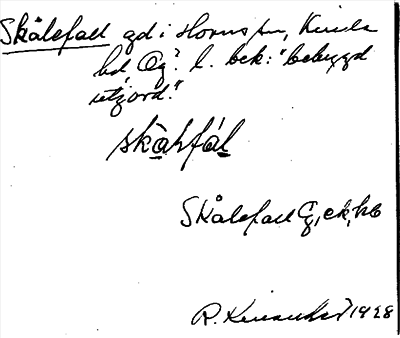 Skålefall gd i Horns sn, Kinda
hd Ög. l. bek: "bebyggd
utjord."
skàlfál
Skålefall G, ek, hb
R. Kinander 1928